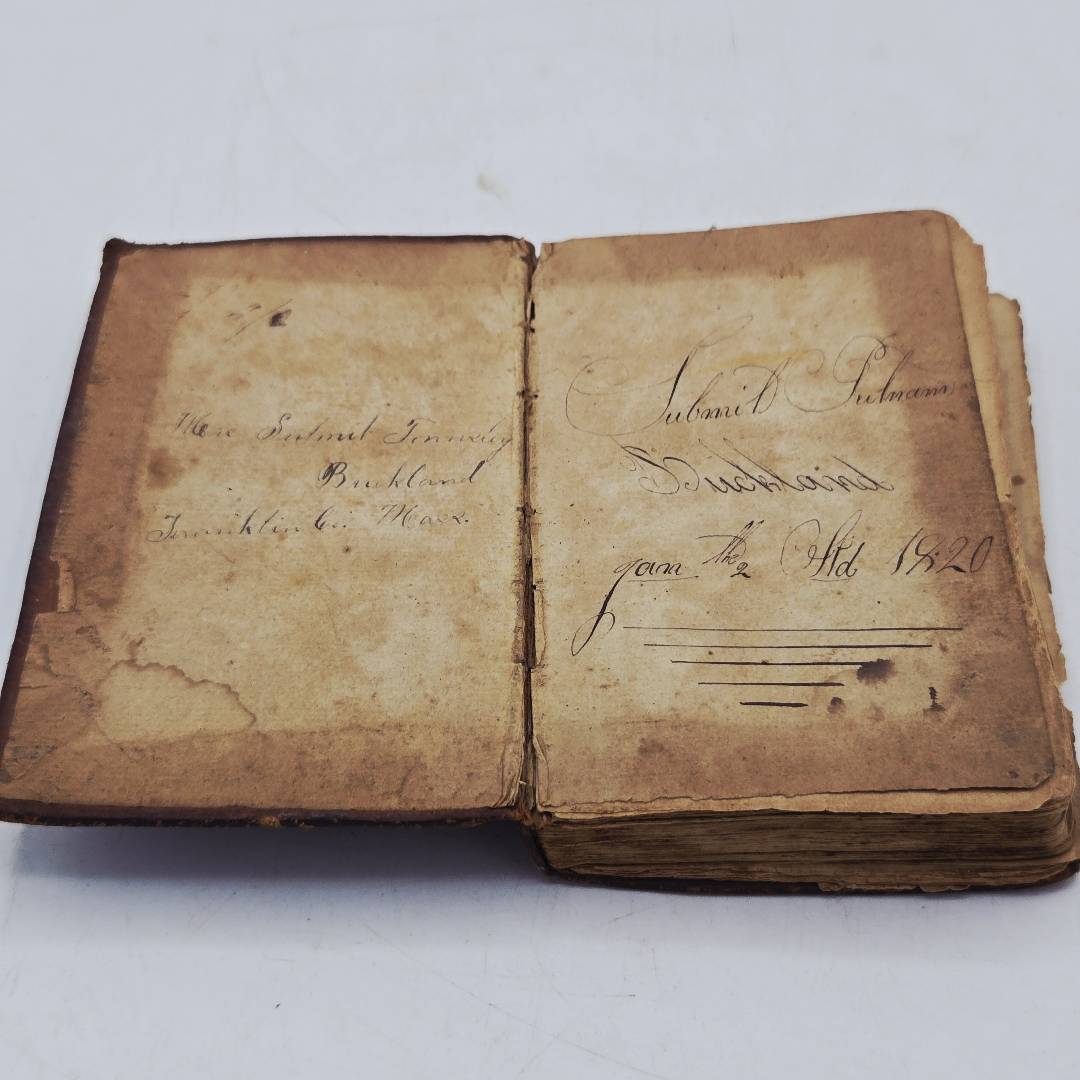 Mrs Submit Townsley
Buckland
Franklin Co. Mass.
Submit Putnam
Buckland
Jan the 2 1820